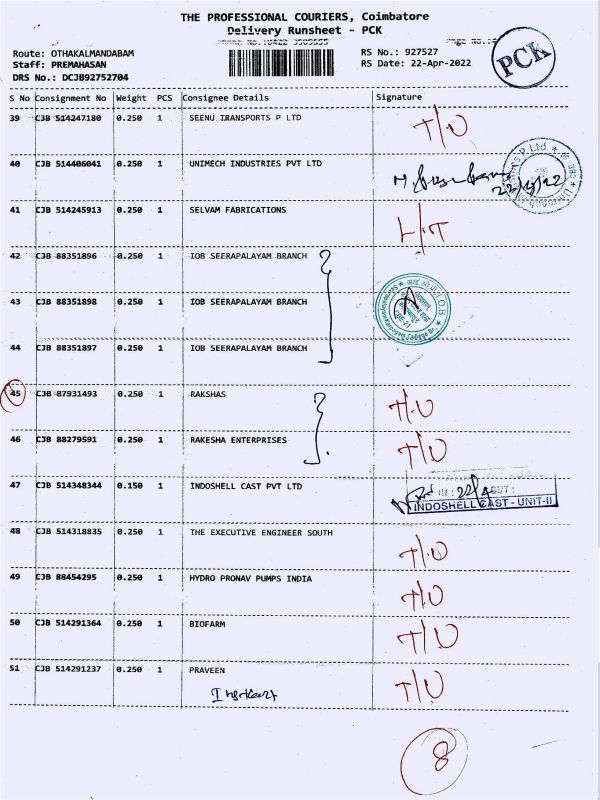 THE PROFESSIONAL COURIERS, Coimbatore
Delivery Runsheet - PCK
Route: OTHAKALMANDABAM
Staff: PREMAHASAN
DRS No.: DCJB92752704
RS No.: 927527
RS Date: 22-Apr-2022
PCK
S No Consignment No Weight PCS Consignee Details Signature
39 CJB 514247180 0.250 1 SEENU TRANSPORTS P LTD T/U
40 CJB 514406041 0.250 1 UNIMECH INDUSTRIES PVT LTD 22/4/22
41 CJB 514245913 0.250 1 SELVAM FABRICATIONS
42 CJB 88351896 0.250 1 IOB SEERAPALAYAM BRANCH
43 CJB 88351898 0.250 1 IOB SEERAPALAYAM BRANCH
44 CJB 88351897 0.250 1 IOB SEERAPALAYAM BRANCH
45 CJB 87931493 0.250 1 RAKSHAS T/U
46 CJB 88279591 0.250 1 RAKESHA ENTERPRISES T/U
47 CJB 514348344 0.150 1 INDOSHELL CAST PVT LTD
INDOSHELL CAST - UNIT-II
48 CJB 514318835 0.250 1 THE EXECUTIVE ENGINEER SOUTH T/U
49 CJB 88454295 0.250 1 HYDRO PRONAV PUMPS INDIA T/U
50 CJB 514291364 0.250 1 BIOFARM T/U
51 CJB 514291237 0.250 1 PRAVEEN T/U
8